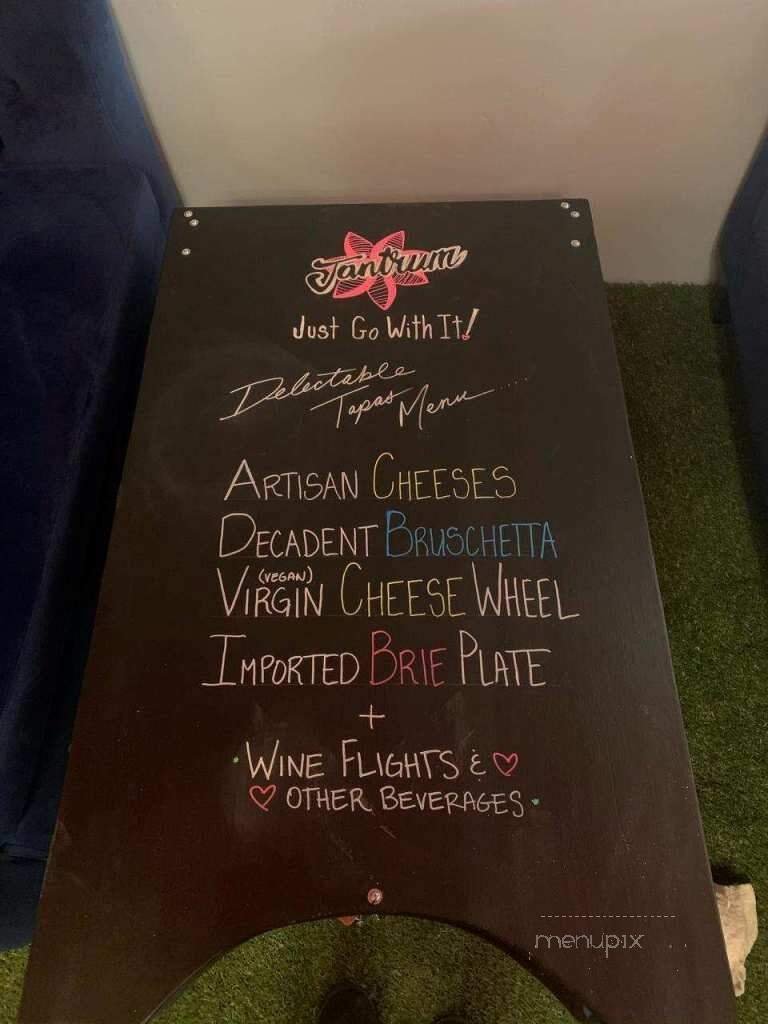 Tantrum
Just Go With It!
Delectable
Tapas Menu.....
ARTISAN CHEESES
DECADENT BRUSCHETTA
(VEGAN)
VIRGIN CHEESE WHEEL
IMPORTED BRIE PLATE
+
• WINE FLIGHTS &
OTHER BEVERAGES •
menupix